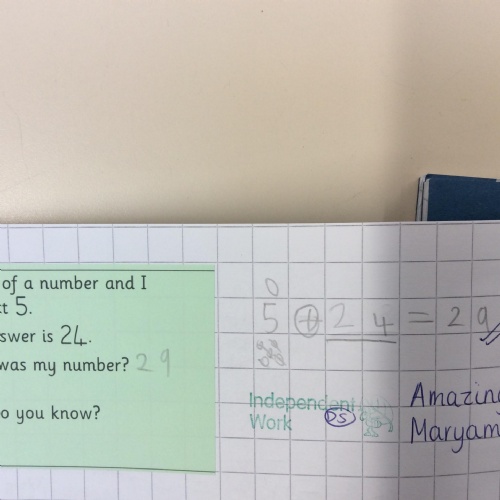 of a number and I
ct 5.
swer is 24.
was my number? 29
o you know?
0
5 + 24 = 29
Independent
Work
DS
Amazing
Maryam